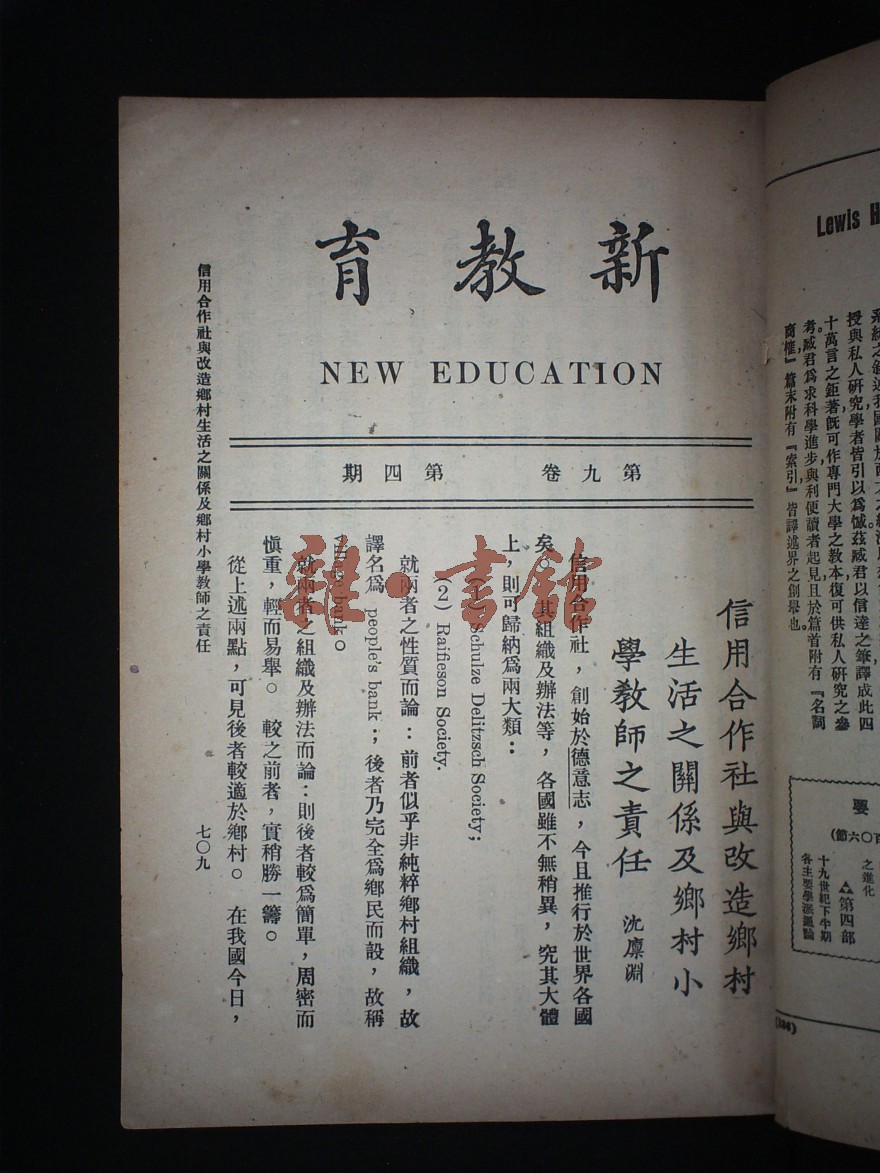 新教育
NEW EDUCATION
第九卷 第四期
信用合作社與改造鄉村
生活之關係及鄉村小
學教師之責任 沈廪淵
信用合作社，創始於德意志，今且推行於世界各國
矣。其組織及辦法等，各國雖不無稍異，究其大體
上，則可歸納爲兩大類：
(1) Schulze Delitzsch Society;
(2) Raifieson Society.
就兩者之性質而論：前者似乎非純粹鄉村組織，故
譯名爲 people's bank；後者乃完全爲鄉民而設，故稱
village bank。
就兩者之組織及辦法而論：則後者較爲簡單，周密而
愼重，輕而易舉。較之前者，實稍勝一籌。
從上述兩點，可見後者較適於鄉村。在我國今日，
信用合作社與改造鄉村生活之關係及鄉村小學教師之責任
七〇九
雜·書舘
Lewis H
授與私人研究學者皆引以爲憾茲臧君以信達之筆譯成此四
十萬言之鉅著旣可作專門大學之敎本復可供私人研究之參
考。臧君爲求科學進步與利便讀者起見且於篇首附有『名詞
商榷』篇末附有『索引』皆譯述界之創舉也。
要
百〇六節)
之進化
第四部
十九世紀下半期
各主要學派通論